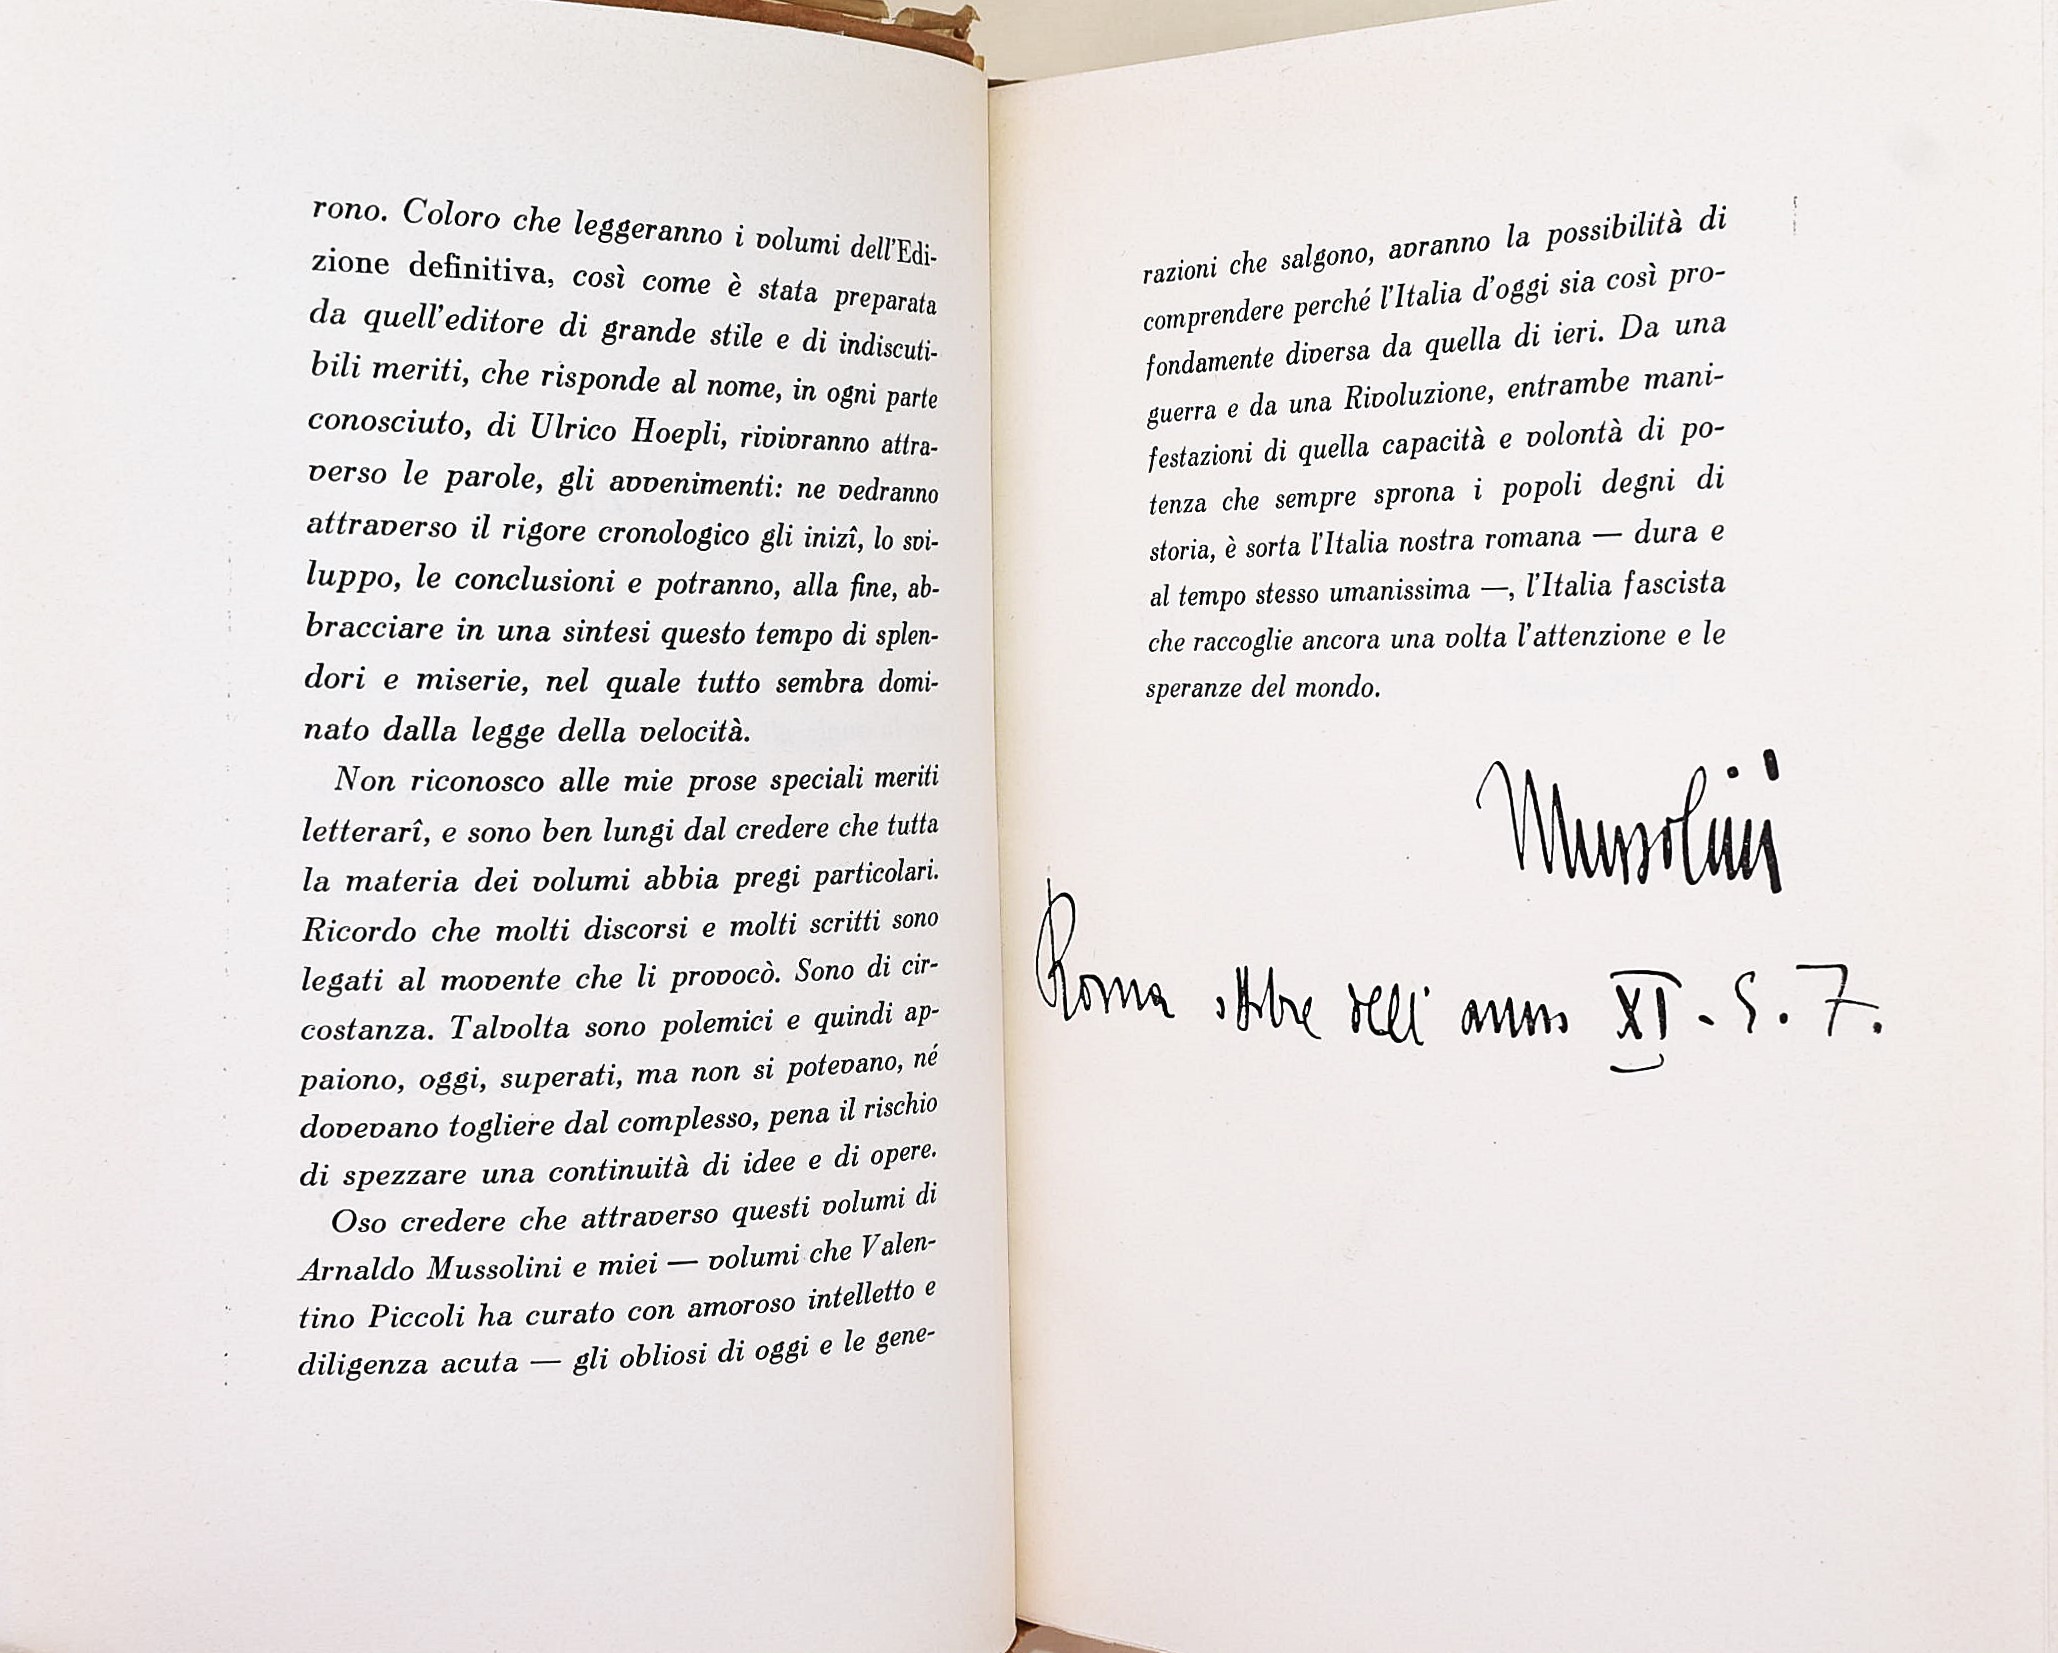 rono. Coloro che leggeranno i volumi dell'Edi-
zione definitiva, così come è stata preparata
da quell'editore di grande stile e di indiscuti-
bili meriti, che risponde al nome, in ogni parte
conosciuto, di Ulrico Hoepli, rivivranno attra-
verso le parole, gli avvenimenti: ne vedranno
attraverso il rigore cronologico gli inizî, lo svi-
luppo, le conclusioni e potranno, alla fine, ab-
bracciare in una sintesi questo tempo di splen-
dori e miserie, nel quale tutto sembra domi-
nato dalla legge della velocità.
Non riconosco alle mie prose speciali meriti
letterarî, e sono ben lungi dal credere che tutta
la materia dei volumi abbia pregi particolari.
Ricordo che molti discorsi e molti scritti sono
legati al movente che li provocò. Sono di cir-
costanza. Talvolta sono polemici e quindi ap-
paiono, oggi, superati, ma non si potevano, né
dovevano togliere dal complesso, pena il rischio
di spezzare una continuità di idee e di opere.
Oso credere che attraverso questi volumi di
Arnaldo Mussolini e miei — volumi che Valen-
tino Piccoli ha curato con amoroso intelletto e
diligenza acuta — gli obliosi di oggi e le gene-
razioni che salgono, avranno la possibilità di
comprendere perché l'Italia d'oggi sia così pro-
fondamente diversa da quella di ieri. Da una
guerra e da una Rivoluzione, entrambe mani-
festazioni di quella capacità e volontà di po-
tenza che sempre sprona i popoli degni di
storia, è sorta l'Italia nostra romana — dura e
al tempo stesso umanissima —, l'Italia fascista
che raccoglie ancora una volta l'attenzione e le
speranze del mondo.
Mussolini
Roma ottobre dell'anno XI. E. F.